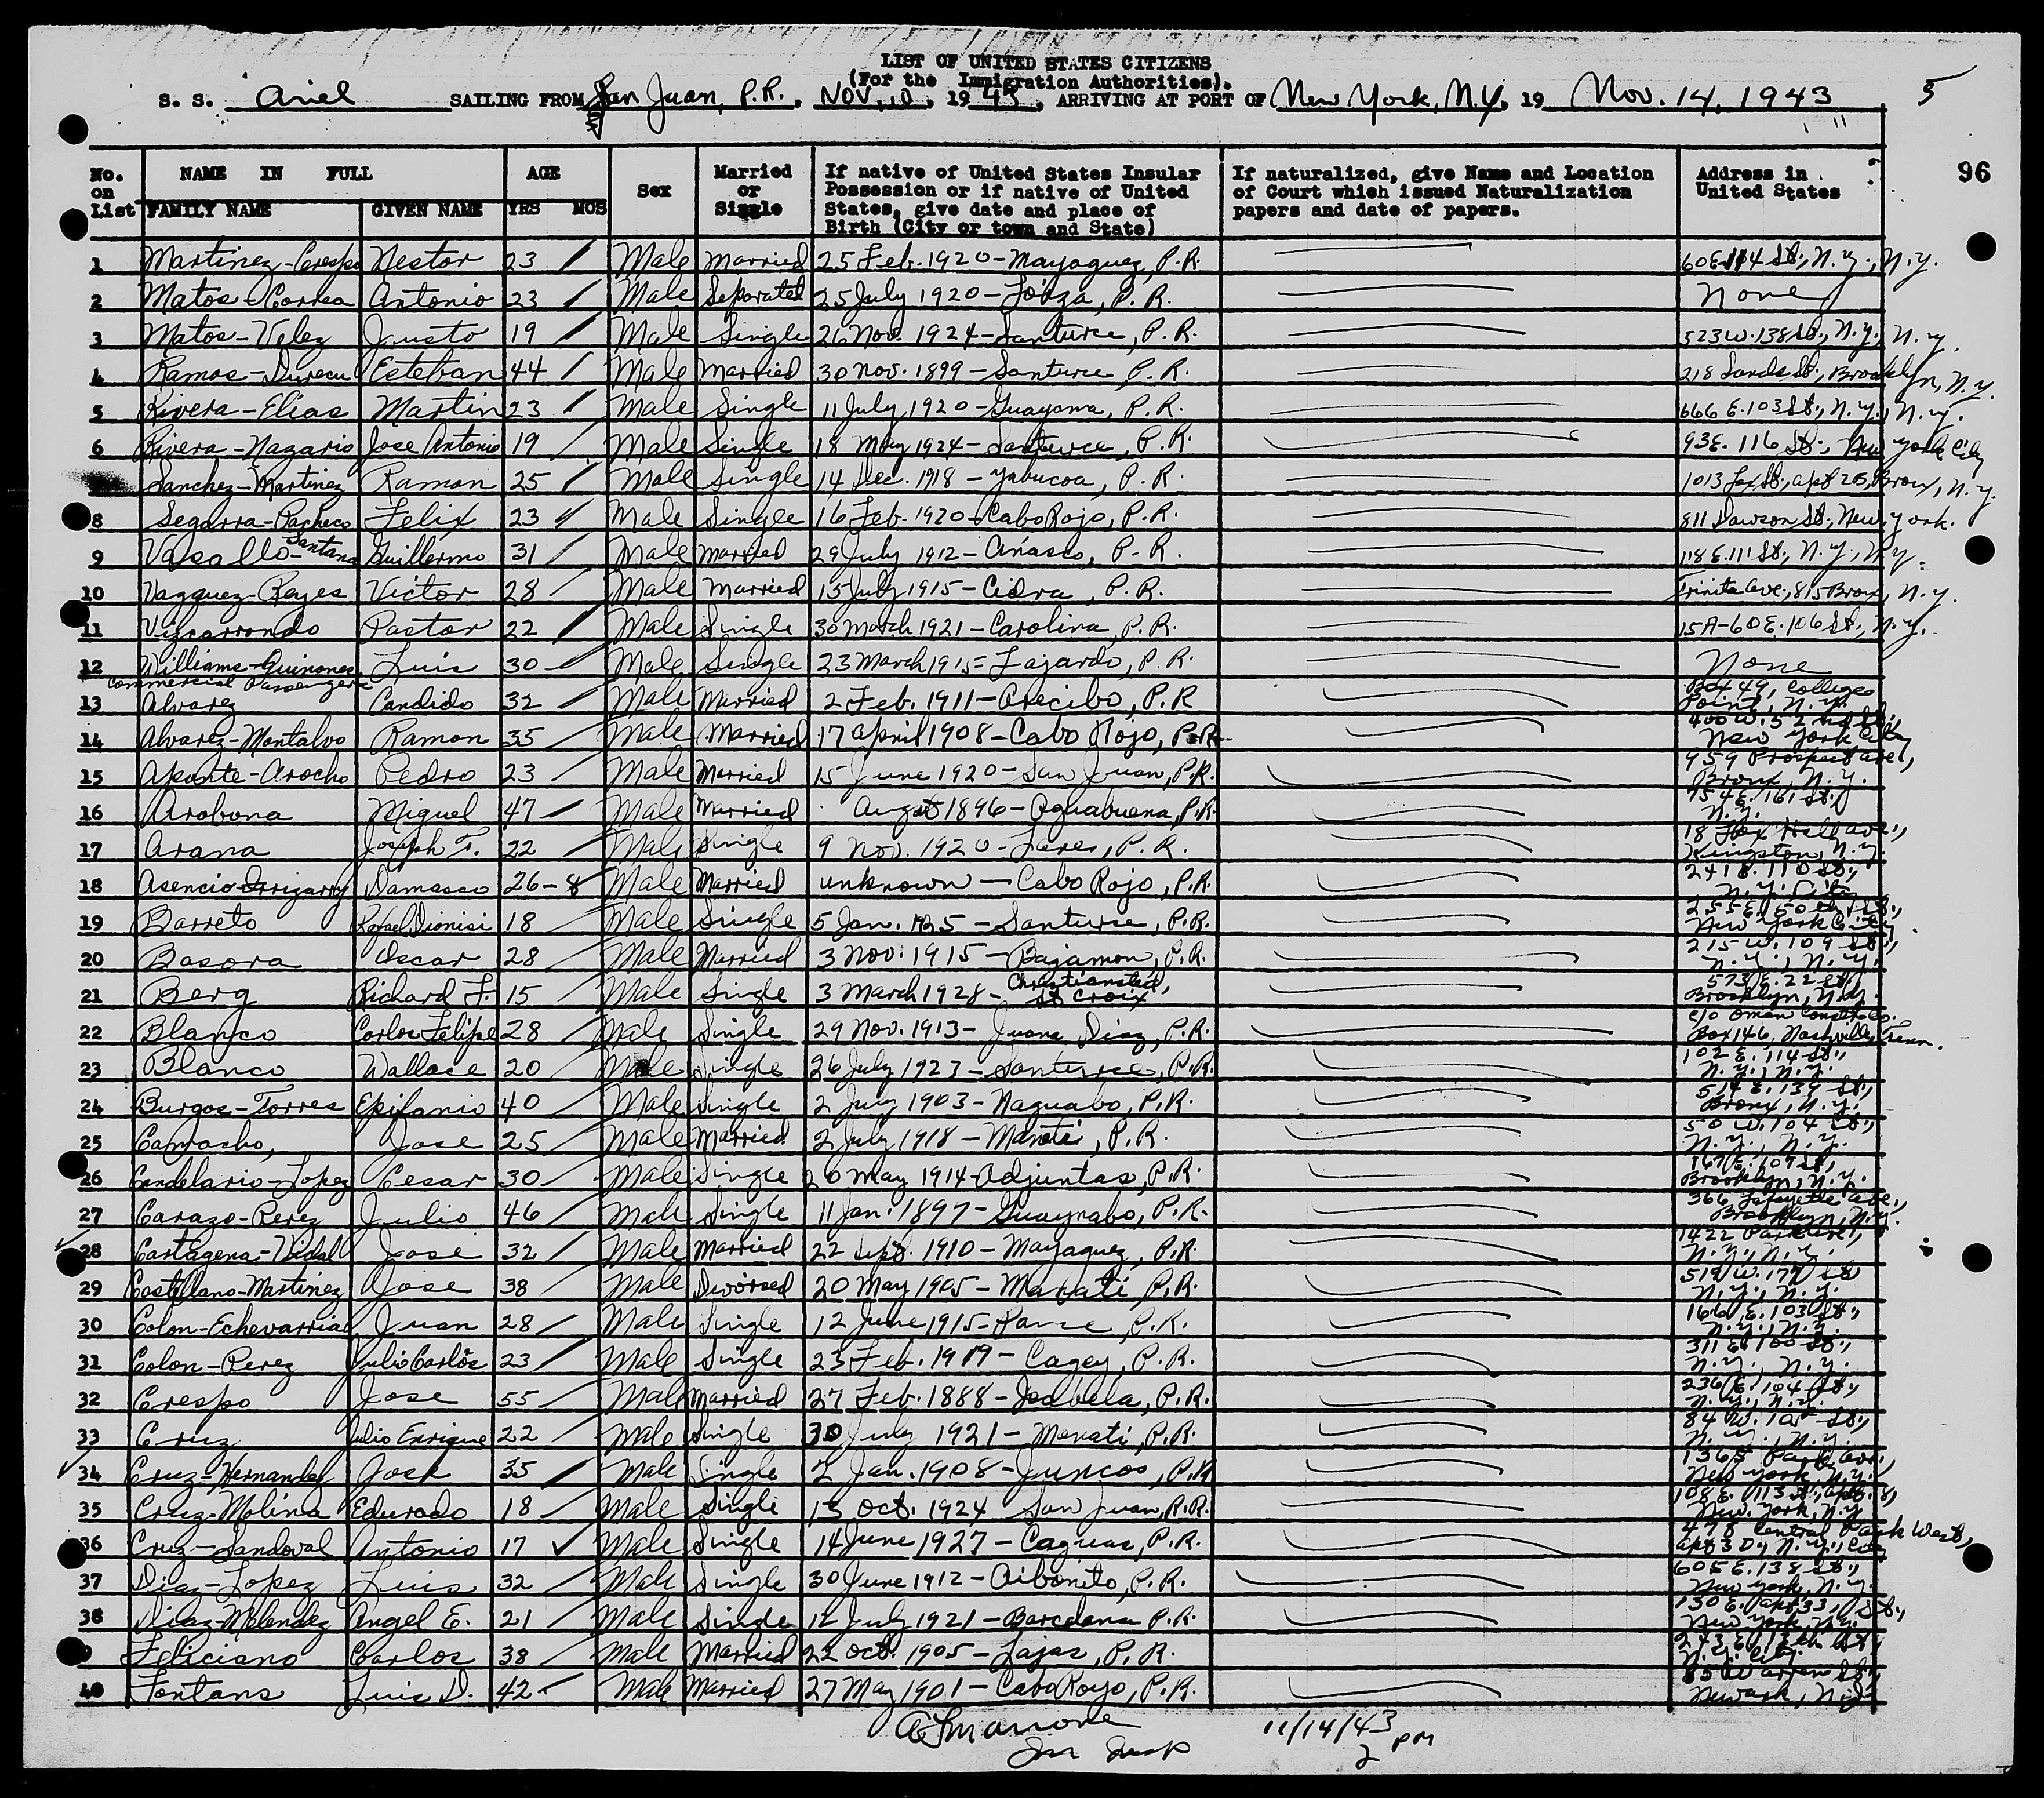 LIST OF UNITED STATES CITIZENS
(For the Immigration Authorities).
S. S. Ariel SAILING FROM San Juan, P.R., Nov. 10, 1943, ARRIVING AT PORT OF New York, N.Y. 19 Nov. 14, 1943 5
96
No. on List NAME IN FULL FAMILY NAME GIVEN NAME AGE YRS MOS Sex Married or Single If native of United States Insular Possession or if native of United States, give date and place of Birth (City or town and State) If naturalized, give Name and Location of Court which issued Naturalization papers and date of papers. Address in United States
1 Martinez-Crespo Nestor 23 Male Married 25 Feb. 1920-Mayaguez, P.R. 60 E 114 St., N.Y., N.Y.
2 Matos-Correa Antonio 23 Male Separated 25 July 1920-Loiza, P.R. None
3 Matos-Velez Justo 19 Male Single 26 Nov. 1924-Santurce, P.R. 523 W. 138 St., N.Y., N.Y.
4 Ramos- Esteban 44 Male Married 30 Nov. 1899-Santurce P.R. 218 Sands St., Brooklyn, N.Y.
5 Rivera-Elias Martin 23 Male Single 11 July 1920-Guayama, P.R. 666 E. 103 St., N.Y., N.Y.
6 Rivera-Nazario Jose Antonio 19 Male Single 18 May 1924-Santurce, P.R. 93 E. 116 St., New York City
Sanchez-Martinez Ramon 25 Male Single 14 Dec. 1918-Yabucoa, P.R. 1013 Fox St., apt 2B, Bronx, N.Y.
8 Segarra-Pacheco Felix 23 Male Single 16 Feb. 1920-Cabo Rojo, P.R. 811 Dawson St., New York.
9 Vasallo-Santana Guillermo 31 Male Married 29 July 1912-Añasco, P.R. 118 E. 111 St., N.Y., N.Y.
10 Vazquez-Reyes Victor 28 Male Married 15 July 1915-Cidra, P.R. Trinita Ave., 815 Bronx, N.Y.
11 Vizcarrondo Pastor 22 Male Single 30 March 1921-Carolina, P.R. 15A-60 E. 106 St., N.Y.
12 Williams-Quinones Luis 30 Male Single 23 March 1915-Fajardo, P.R. None
Commercial Passengers
13 Alvarez Candido 32 Male Married 2 Feb. 1911-Arecibo, P.R Box 49, College Point, N.Y.
14 Alvarez-Montalvo Ramon 35 Male Married 17 April 1908-Cabo Rojo, P.R. 400 W. 52nd St., New York City
15 Aponte-Arocho Pedro 23 Male Married 15 June 1920-San Juan, P.R. 959 Prospect Ave., Bronx, N.Y.
16 Arobona Miguel 47 Male Married August 1896-Aguabuena, P.R. 754 E. 161 St., N.Y.
17 Arana Joseph F. 22 Male Single 9 Nov. 1920-Lares, P.R. 18 Fox Hall Ave., Kingston, N.Y.
18 Asencio-Irrizarry Damasco 26-8 Male Married unknown-Cabo Rojo, P.R. 241 E. 110 St., N.Y. City
19 Barreto Rafael Dionisi 18 Male Single 5 Jan. 1925-Santurce, P.R. 255 E. 50th St., New York City
20 Basora Oscar 28 Male Married 3 Nov. 1915-Bajamon, P.R. 215 W. 109 St., N.Y., N.Y.
21 Berg Richard F. 15 Male Single 3 March 1928-Christiansted, St Croix 573 E. 22 St., Brooklyn, N.Y.
22 Blanco Carlos Felipe 28 Male Single 29 Nov. 1913-Juana Diaz, P.R. c/o Oman Constr. Co. Box 146, Nashville, Tenn.
23 Blanco Wallace 20 Male Single 26 July 1923-Santurce, P.R. 102 E. 114 St., N.Y., N.Y.
24 Burgos-Torres Epifanio 40 Male Single 2 July 1903-Naguabo, P.R. 514 E. 139 St., Bronx, N.Y.
25 Camacho, Jose 25 Male Married 2 July 1918-Manati, P.R. 50 W. 104 St., N.Y., N.Y.
26 Candelario-Lopez Cesar 30 Male Single 20 May 1914-Adjuntas, P.R. 167 E. 109 St., Brooklyn, N.Y.
27 Carazo-Perez Julio 46 Male Single 11 Jan. 1897-Guaynabo, P.R. 366 Lafayette Ave., Brooklyn, N.Y.
28 Cartagena-Vidal Jose 32 Male Married 22 Sept. 1910-Mayaguez, P.R. 1422 Park Ave., N.Y., N.Y.
29 Castellano-Martinez Jose 38 Male Divorsed 20 May 1905-Manati, P.R. 519 W. 177 St N.Y., N.Y.
30 Colon-Echevarria Juan 28 Male Single 12 June 1915-Ponce, P.R. 166 E. 103 St., N.Y., N.Y.
31 Colon-Perez Julio Carlos 23 Male Single 23 Feb. 1919-Cagey, P.R. 311 E. 100 St., N.Y., N.Y.
32 Crespo Jose 55 Male Married 27 Feb. 1888-Isabela, P.R. 236 E. 104 St., N.Y., N.Y.
33 Cruz Julio Enrique 22 Male Single 30 July 1921-Manati, P.R. 84 W. St., N.Y., N.Y.
34 Cruz-Hernandez Jose 35 Male Single 2 Jan. 1908-Juncos, P.R 1365 Park Ave., New York, N.Y.
35 Cruz-Molina Edurado 18 Male Single 13 Oct. 1924 San Juan, P.R. 108 E. 113 St., apt. 8, New York, N.Y
36 Cruz-Sandoval Antonio 17 Male Single 14 June 1927-Caguas, P.R. 478 Central Park West, apt 3D, N.Y., City
37 Diaz-Lopez Luis 32 Male Single 30 June 1912-Aibonito, P.R. 605 E. 138 St., New York, N.Y.
38 Diaz-Melendez Angel E. 21 Male Single 12 July 1921-Barcelona P.R. 130 E. apt 33, St., New York, N.Y.
9 Feliciano Carlos 38 Male Married 22 Oct. 1905-Lajas, P.R. 243 E. 113th St., N.Y. City.
40 Fontans Luis D. 42 Male Married 27 May 1901-Cabo Royo, P.R. 85 Warren St., Newark, N.J.
11/14/43
2 PM